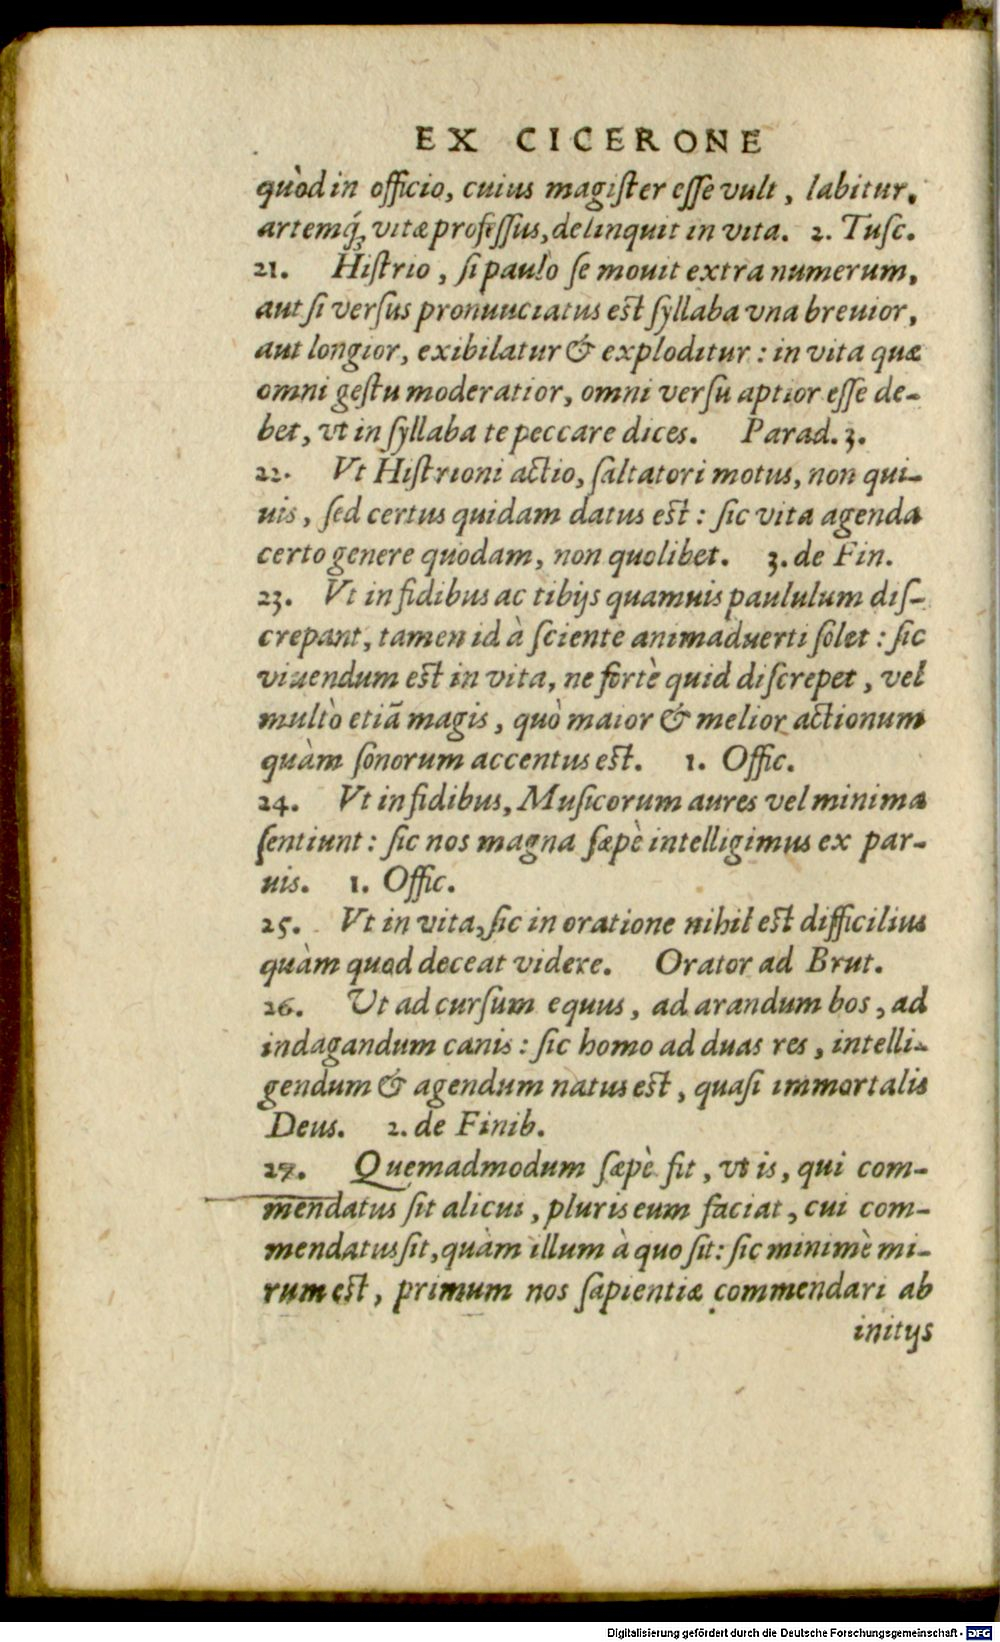 EX CICERONE
quòd in officio, cuius magiſter eſſe vult, labitur,
artemq́ꝫ vitæ profeſſus, delinquit in vita. 2. Tuſc.
21. Hiſtrio, ſi paulo ſe mouit extra numerum,
aut ſi verſus pronuuciatus eſt ſyllaba vna breuior,
aut longior, exibilatur & exploditur: in vita quæ
omni geſtu moderatior, omni verſu aptior eſſe de-
bet, vt in ſyllaba te peccare dices. Parad. 3.
22. Vt Hiſtrioni actio, ſaltatori motus, non qui-
uis, ſed certus quidam datus eſt: ſic vita agenda
certo genere quodam, non quolibet. 3. de Fin.
23. Vt in fidibus ac tibijs quamuis paululum diſ-
crepant, tamen id à ſciente animaduerti ſolet: ſic
viuendum eſt in vita, ne fortè quid diſcrepet, vel
multò etiã magis, quò maior & melior actionum
quàm ſonorum accentus eſt. 1. Offic.
24. Vt in fidibus, Muſicorum aures vel minima
ſentiunt: ſic nos magna ſæpè intelligimus ex par-
uis. 1. Offic.
25. Vt in vita, ſic in oratione nihil eſt difficilius
quàm quod deceat videre. Orator ad Brut.
26. Ut ad curſum equus, ad arandum bos, ad
indagandum canis: ſic homo ad duas res, intelli-
gendum & agendum natus eſt, quaſi immortalis
Deus. 2. de Finib.
27. Quemadmodum ſæpè fit, vt is, qui com-
mendatus ſit alicui, pluris eum faciat, cui com-
mendatus ſit, quàm illum à quo ſit: ſic minimè mi-
rum eſt, primum nos ſapientiæ commendari ab
initijs
Digitalisierung gefördert durch die Deutsche Forschungsgemeinschaft - DFG